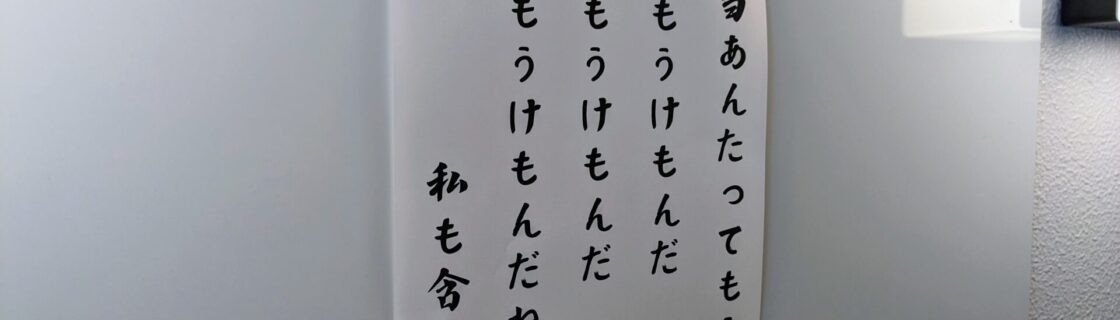 あんたっても
もうけもんだ
もうけもんだ
もうけもんだね
私も含